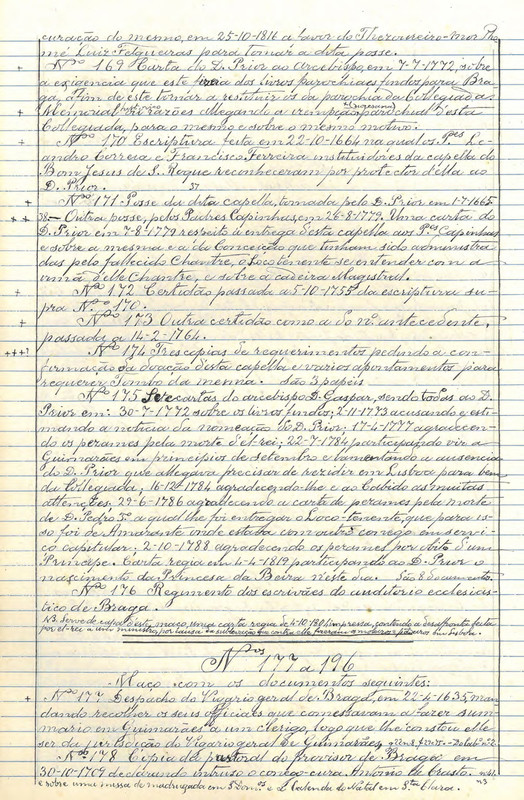 curação do mesmo, em 25-10-1816 a favor do Thezoureiro-Mor Tho
mé Luiz Felgueiras para tomar a dita posse.
+ Nº 169 Carta do D. Prior ao arcebispo, em 7-7-1772, sobre
a exigencia que este fizera dos livros parochiaes findos para Bra
ga, a fim de este tornar a restituir os da parochia da Collegiada.
+ Memorial razões allegando a izempção parochial d'esta
Collegiada, para o mesmo e sobre o mesmo motivo.
+ Nº 170 Escriptura feita em 22-10-1664 na qual os Pes Le
andro Correia e Francisco Ferreira instituidores da capella do
Bom Jesus de S. Roque reconheceram por protector d'ella ao
D. Prior. 37
+ Nº 171 Posse da dita capella, tomada pelo D. Prior em 1-7-1665
++ 38 — Outra posse, pelos Padres Capinhas, em 26-8-1779. Uma carta do
D. Prior em 7-8-1779 respeito á entrega d'esta capella aos Pes Capinhas
e sobre a mesma e a da Conceição que tenham sido administra
das pelo fallecido Chantre, o Loco tenente se entender com a
irmã d'elle Chantre, e sobre a cadeira Magistral.
+ Nº 172 Certidão passada a 5-10-1755 da escriptura su-
pra Nº 170.
+ Nº 173 Outra certidão como a do nº antecedente,
passada a 14-2-1764.
+++ Nº 174 Tres copias de requerimentos pedindo a con-
firmação da doação d'esta capella e varios apontamentos para
requerer Tombo da mesma. São 3 papeis
Nº 175 Sete cartas do arcebispo D. Gaspar, sendo todas ao D.
Prior em: 30-7-1772 sobre os livros findos; 2-11-1773 acusando e esti-
mando a noticia da nomeação do D. Prior; 17-4-1777 agradecen-
do os peramos pela morte d'el-rei; 22-7-1784 participando vir a
Guimarães em principios de setembro e lamentando a ausencia
do D. Prior que allegava precisar de rezidir em Lisboa para bem
da Collegiada; 1784 agradecendo-lhe e ao Cabido as muitas
attenções; 29-6-1786 agradecendo a carta de perames pela morte
de D. Pedro 3º a qual lhe foi entregar o Loco-tenente, que para is-
so foi de Amarante onde estava com outro conego em servi-
ço capitular; 2-10-1788 agradecendo os perames por obito d'um
Principe. Carta regia em 4-4-1819 participando ao D. Prior o
nascimento da Princesa da Beira n'este dia. São 8 documentos.
Nº 176 Regimento dos escrivães do auditorio ecclesias-
tico de Braga.
N.B. Serve de capa d'este maço, uma carta regia de 4-10-1804 impressa, contendo a desafronta feita
por el-rei a um ministro, por causa da sublevação que contra elle fizeram em Lisboa.
Nos 177 a 196
Maço com os documentos seguintes:
+ Nº 177 Despacho do Vigario geral de Braga, em 22-4-1635 man-
dando recolher os seus officiaes que comessavam a fazer sum-
mario em Guimarães a um clerigo, logo que lhe constou elle
ser da jurisdição do Vigario geral de Guimarães.
Nº 178 Cópia da pastoral do Provisor de Braga em
30-10-1709 declarando intruso o conego-cura Antonio de Crasto.
e sobre uma missa da madrugada em S. Dom.os e Kalenda do Natal em Sta Clara. 43